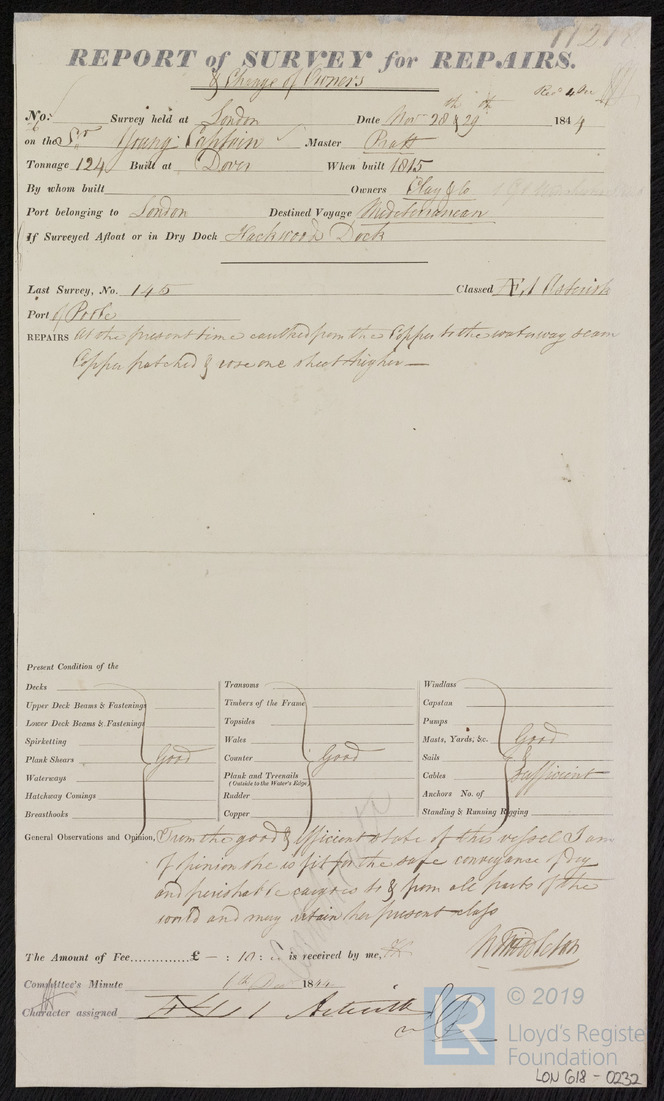 REPORT of SURVEY for REPAIRS.
& Change of Owners
No. Survey held at London Date Nov 28th & 29th 1844
on the Sr Young Captain Master Pratt
Tonnage 124 Built at Dover When built 1815
By whom built Owners Clay & Co
Port belonging to London Destined Voyage Mediterranean
If Surveyed Afloat or in Dry Dock Hackwood Dock
Last Survey, No. 145 Classed Æ 1 Asterisk
Port of Poole
REPAIRS At the present time caulked from the Copper to the waterway seam
Copper patched & rose one sheet higher —
Present Condition of the
Decks
Upper Deck Beams & Fastenings
Lower Deck Beams & Fastenings
Spirketting
Plank Shears Good
Waterways
Hatchway Comings
Breasthooks
Transoms
Timbers of the Frame
Topsides
Wales
Counter Good
Plank and Treenails
(Outside to the Water's Edge)
Rudder
Copper
Windlass
Capstan
Pumps
Masts, Yards, &c. Good
Sails &
Cables Sufficient
Anchors No. of
Standing & Running Rigging
General Observations and Opinion, From the good & efficient state of this vessel I am
of opinion she is fit for the safe conveyance of Dry
and perishable cargoes to & from all parts of the
world and may retain her present class
The Amount of Fee..............£ – : 10 : is received by me, R Middleton
Committee's Minute 184
Character assigned
© 2019
LR
Lloyd's Registe
Foundation
LON 618 - 0232